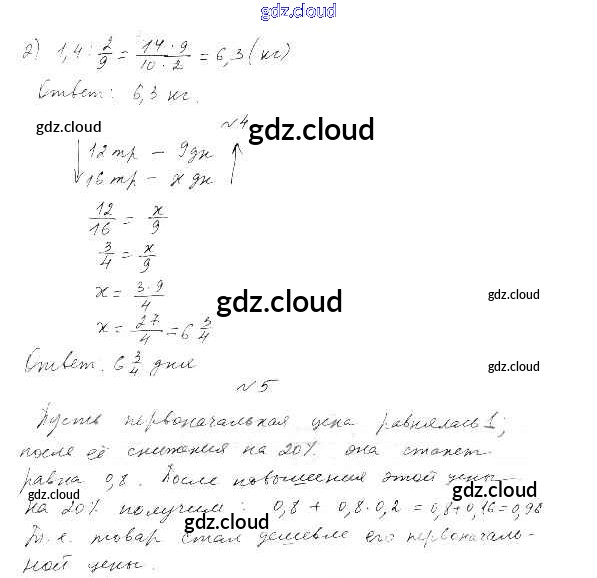 gdz.cloud
2) 1,4 : 2/9 = 14·9/10·2 = 6,3 (кг)
Ответ: 6,3 кг.
gdz.cloud
№4
gdz.cloud
12 тр – 9 дн
16 тр – x дн
12/16 = x/9
3/4 = x/9
x = 3·9/4
gdz.cloud
gdz.cloud
x = 27/4 = 6 3/4
Ответ: 6 3/4 дня
gdz.cloud
№5
Пусть первоначальная цена равнялась 1;
после её снижения на 20% она станет
равна 0,8. После повышения этой цены
gdz.cloud
gdz.cloud
на 20% получим: 0,8 + 0,8·0,2 = 0,8+0,16=0,96
gdz.cloud
Т.е. товар стал дешевле его первоначаль-
ной цены.
gdz.cloud